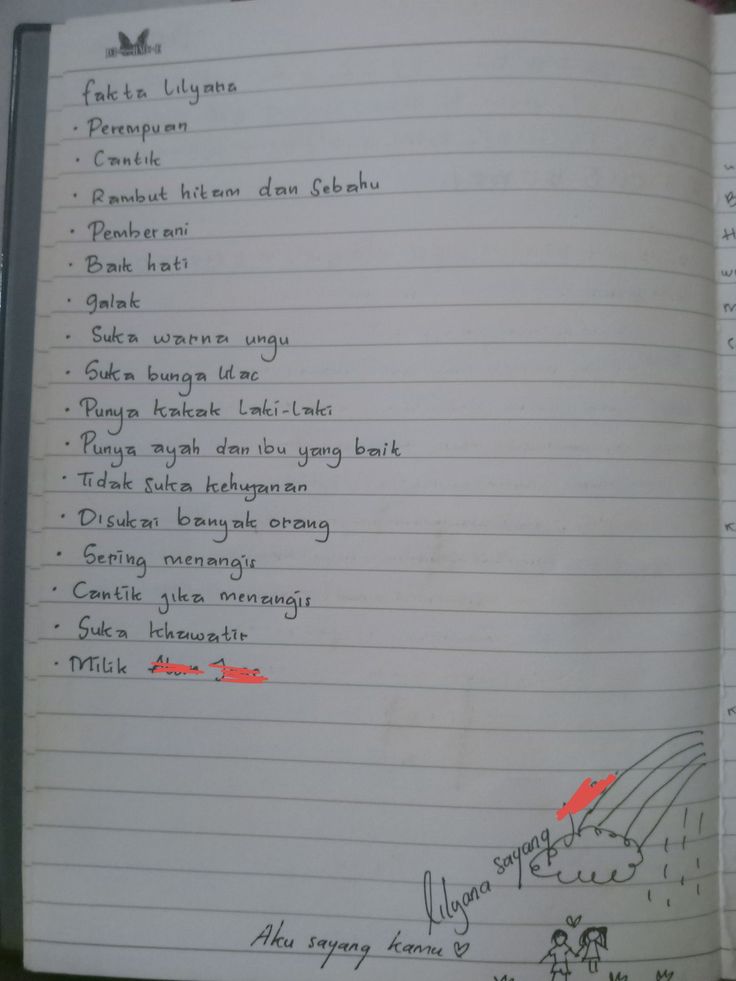 fakta Lilyana
• Perempuan
• Cantik
• Rambut hitam dan Sebahu
• Pemberani
• Baik hati
• galak
• Suka warna ungu
• Suka bunga lilac
• Punya kakak laki-laki
• Punya ayah dan ibu yang baik
• Tidak suka kehujanan
• Disukai banyak orang
• Sering menangis
• Cantik jika menangis
• Suka khawatir
• Milik
lilyana sayang
Aku sayang kamu ♡